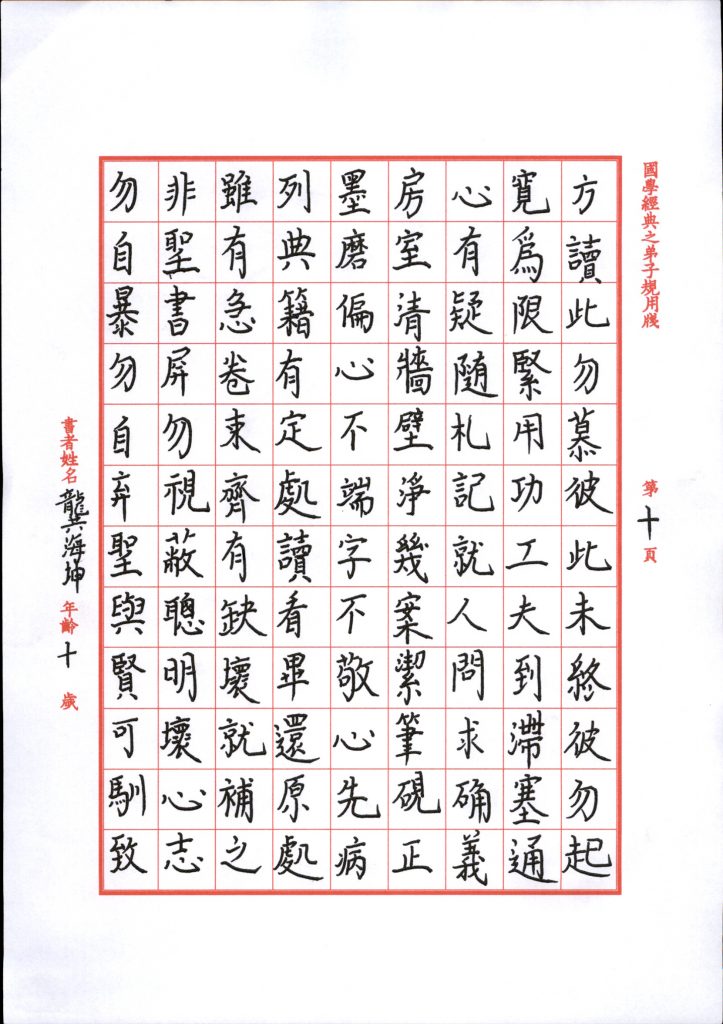 國學經典之弟子規用牋
第十頁
方讀此勿慕彼此未終彼勿起
寬爲限緊用功工夫到滯塞通
心有疑随札記就人問求确義
房室清牆壁淨幾案潔筆硯正
墨磨偏心不端字不敬心先病
列典籍有定處讀看畢還原處
雖有急卷束齊有缺壞就補之
非聖書屏勿視蔽聰明壞心志
勿自暴勿自弃聖與賢可馴致
書者姓名龔海坤年齡十歲